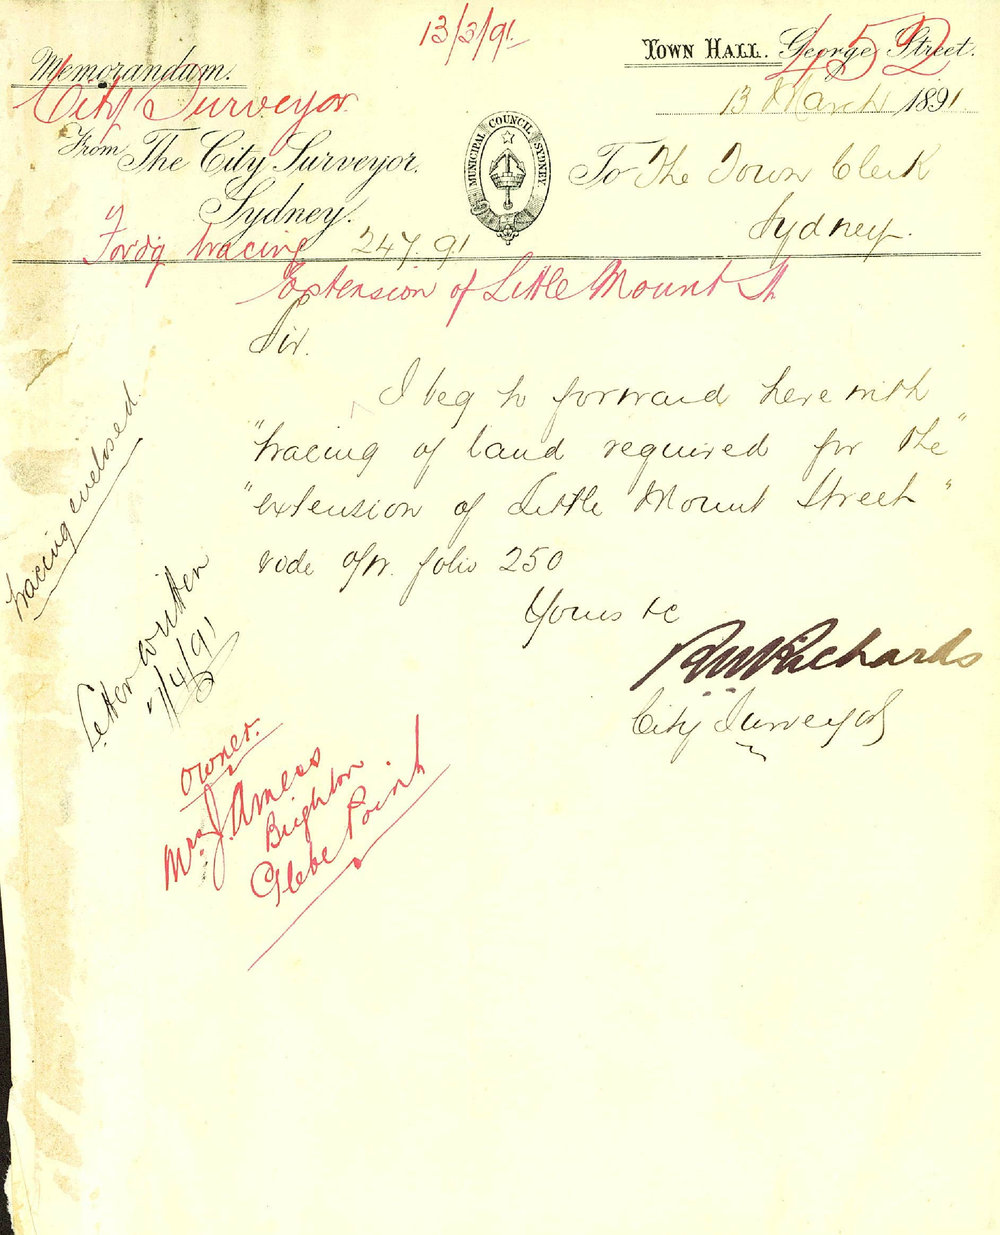 13/3/91
452
Memorandum.
TOWN HALL. George Street.
City Surveyor
13 March 1891
From The City Surveyor.
Sydney.
MUNICIPAL COUNCIL SYDNEY.
To The Town Clerk
Sydney.
Ford'g tracing
247. 91
Extension of Little Mount St
Sir.
I beg to forward herewith
"tracing of land required for the"
"extension of Little Mount Street"
vide folio 250
Yours &c
RWRichards
City Surveyor
tracing enclosed.
Letter written
7/4/91
Owner.
Mrs J. Amess
Brighton
Glebe Point